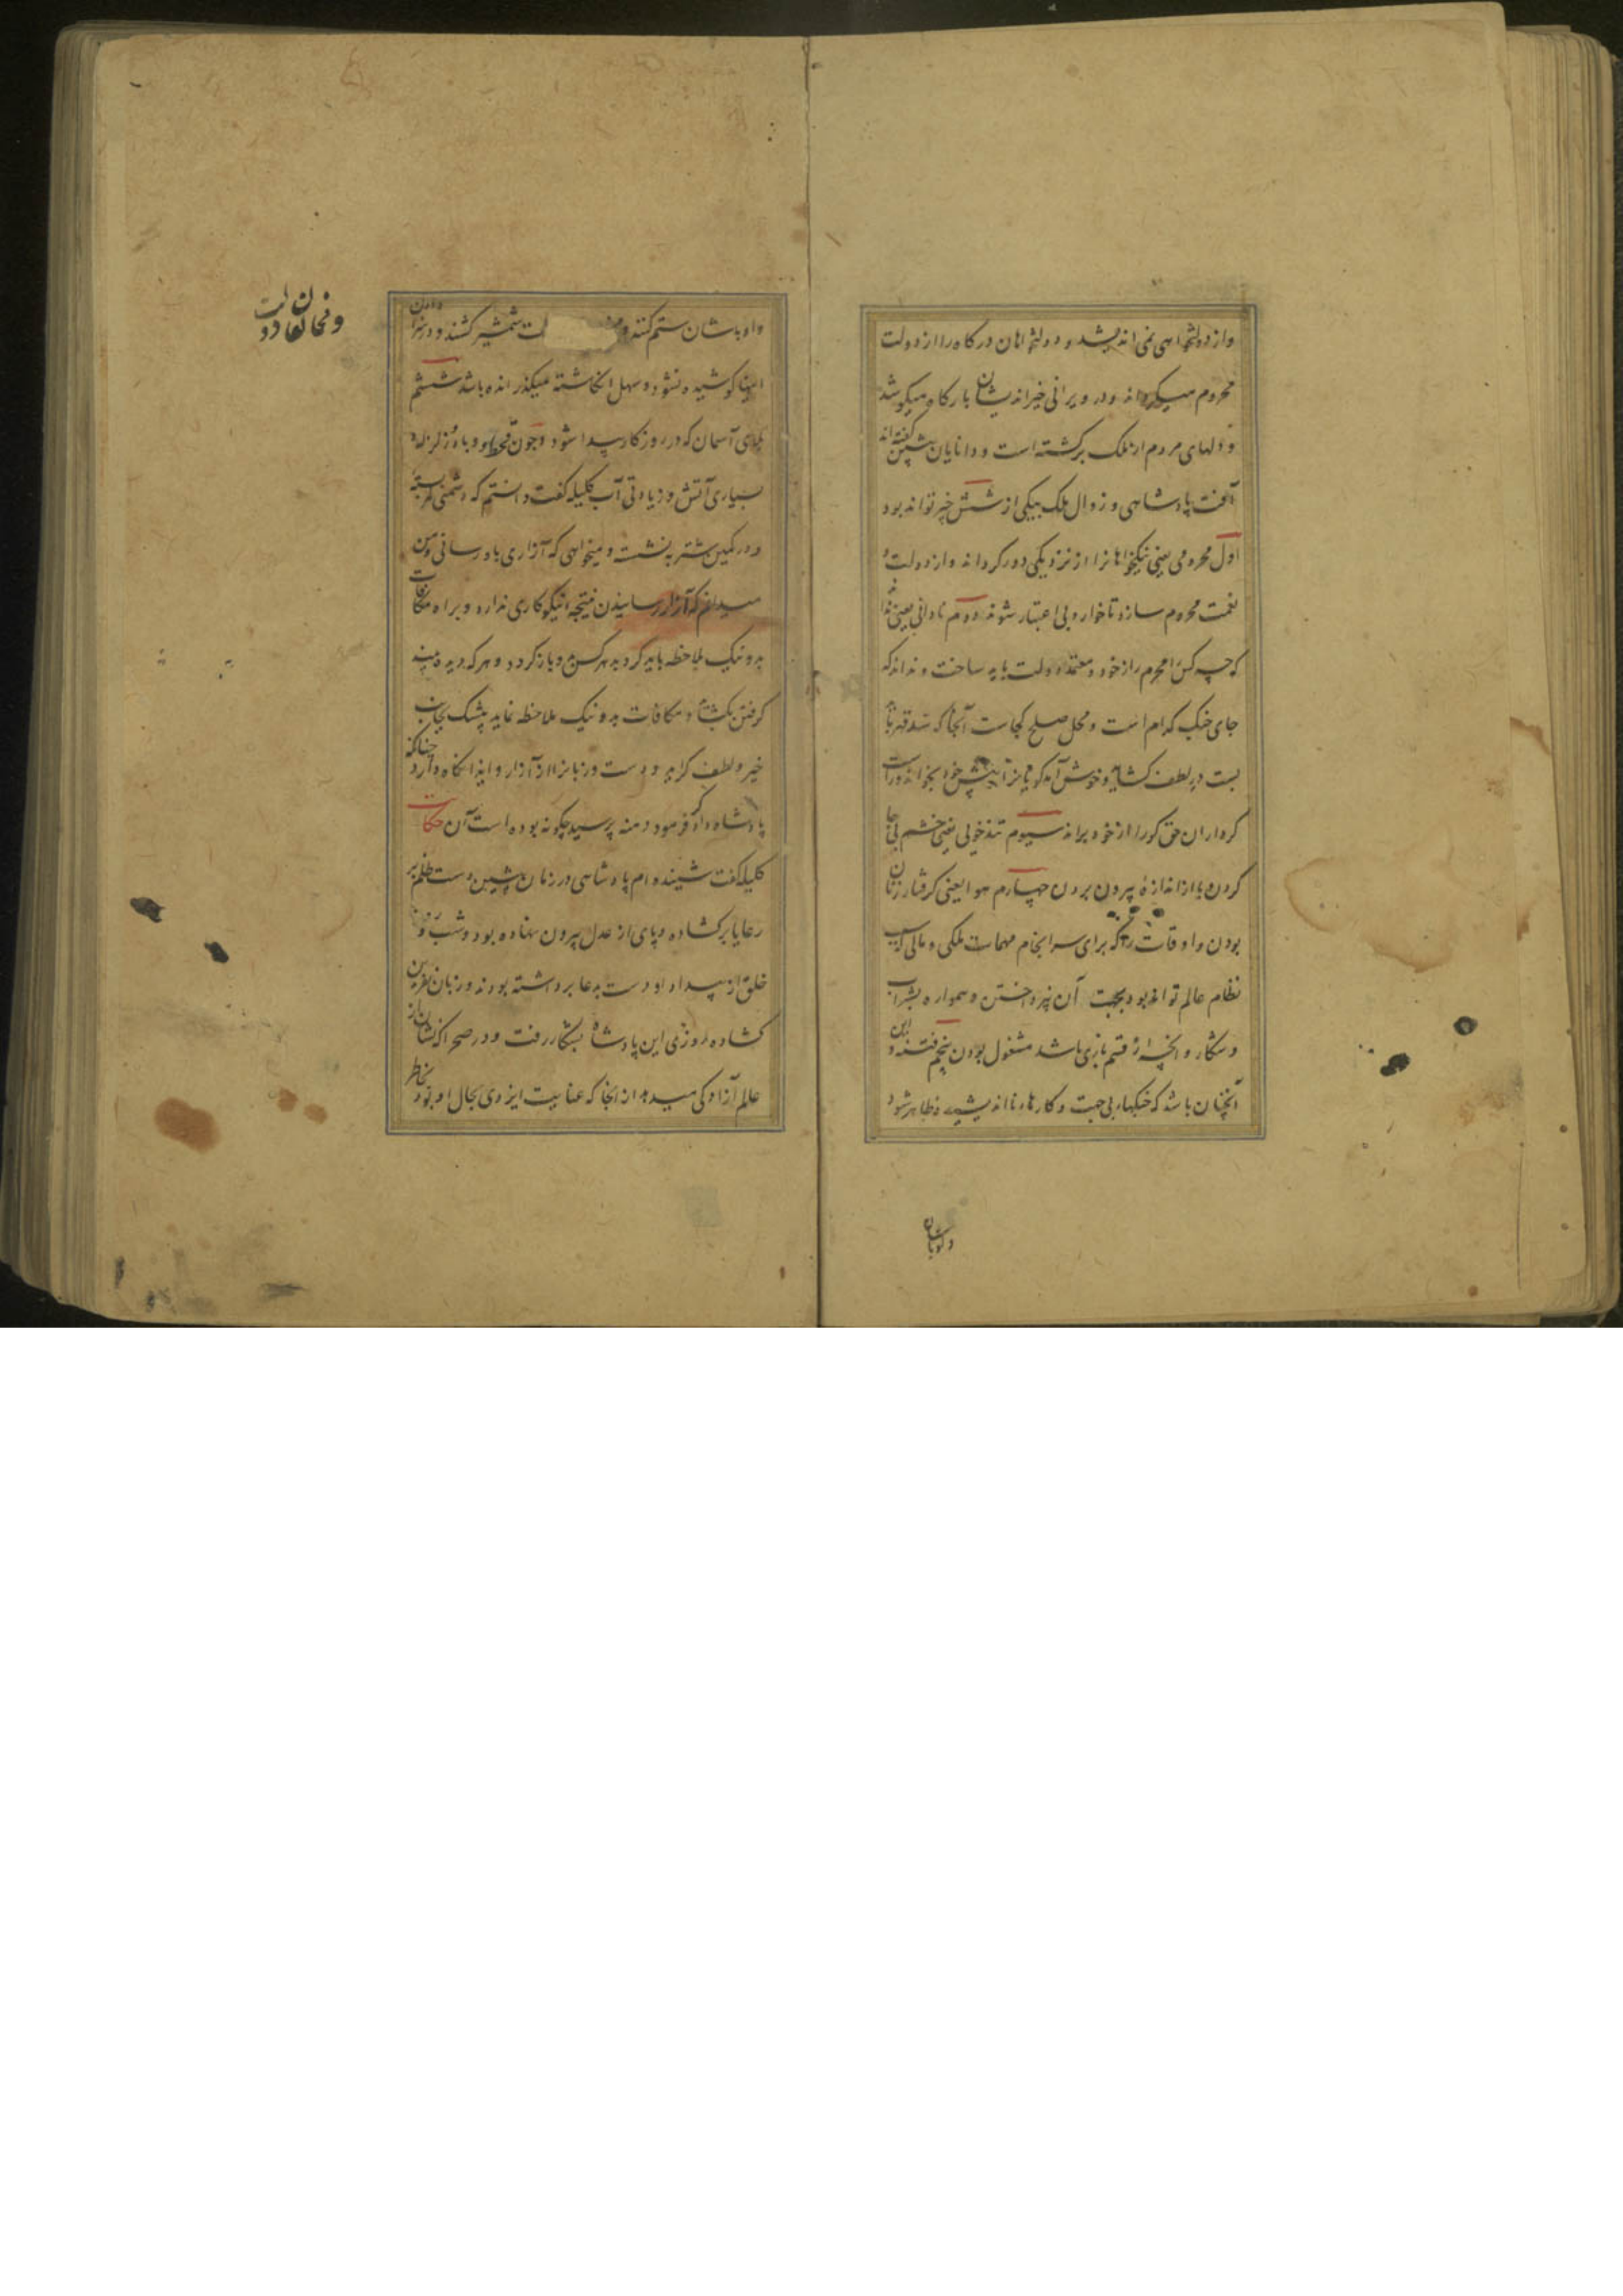 واز دولتخواهی نمی اندیشد و دولتخواهان درگاه را از دولت
محروم میگرداند و در ویرانی خیر اندیشان بارگاه میکوشد
و دلهای مردم از ملک برگشته است و دانایان پیشین گفته اند
آفت پادشاهی و زوال ملک بیکی از شش چیز تواند بود
اول محرومی یعنی نیکخواهانرا از نزدیکی دور گرداند و از دولت و
نعمت محروم سازد تا خوار و بی اعتبار شوند دوم نادانی یعنی نداند
که چه کس را محرم راز خود و معتمد دولت باید ساخت و نداند که
جای جنگ کدام است و محل صلح کجاست آنجا که سد قهر باید
بست در لطف کشاید و خوش آمد گویانرا پیش خود بخواند و راست
کرداران حق گو را از خود براند سیوم تندخوئی یعنی خشم بی جا
کردن و پا از اندازه بیرون بردن چهارم هوا یعنی گرفتار زنان
بودن و اوقات را که برای سرانجام مهمات ملکی و مالی که سبب
نظام عالم تواند بود بجهت آن نپرداختن و همواره بشراب
و شکار و آنچه از قسم بازی باشد مشغول بودن پنجم فتنه و این
آنچنان باشد که جنگهاء بی جهت و کارهاء نااندیشیده ظاهر شود
واوباشان
واوباشان ستم کنند و لت شمشیر کشند و در سزا دادن
اینها کوشیده نشود و سهل انکاشته میگذرانده باشد ششم
بلای آسمان که در روزگار پیدا شود و چون قحط و وبا و زلزله و
بسیاری آتش و زیادتی آب کلیله گفت دانستم که دشمنی کمر بسته
و در کمین شتربه نشسته و میخواهی که آزاری باو رسانی و من
میدانم که آزار رسانیدن نتیجه نیکوکاری ندارد و براه مکافات
بد و نیک ملاحظه باید کرد بد هر کس بدو باز گردد و هر که دیده پند
گرفتن بکشاید و مکافات بد و نیک ملاحظه نماید بیشک بجانب
خیر و لطف گراید و دست و زبانرا از آزار و ایذا نگاه دارد چنانکه
پادشاه دادگر فرمود دمنه پرسید چگونه بوده است آن حکایت
کلیله گفت شنیده ام پادشاهی در زمان پیشین دست ظلم بر
رعایا برکشاده و پای از عدل بیرون نهاده بود و شب و روز
خلق از بیداد او دست بدعا برداشته بودند و زبان نفرین
کشاده روزی این پادشاه بشکار رفت و در صحرا که نشان از
عالم آزادگی میدهد از انجا که عنایت ایزدی بحال او بود بخاطر
ومخالفان دولت